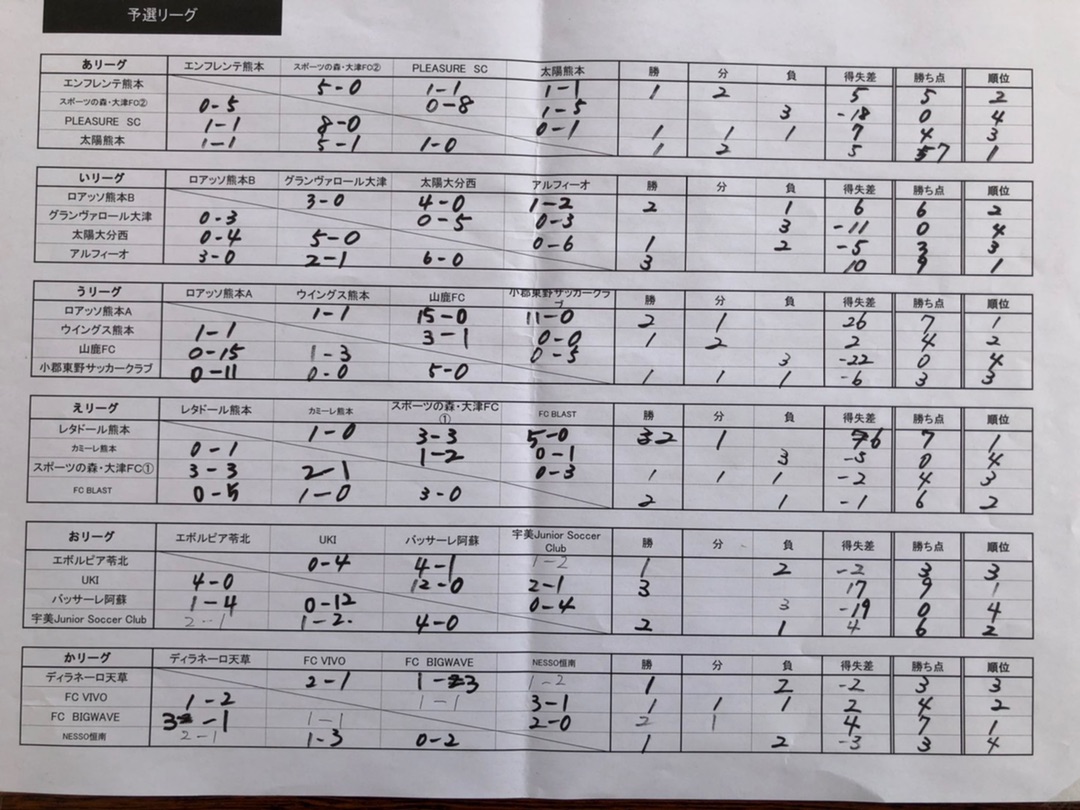 予選リーグ
あリーグ エンフレンテ熊本 スポーツの森・大津FC② PLEASURE SC 太陽熊本 勝 分 負 得失差 勝ち点 順位
エンフレンテ熊本 5-0 1-1 1-1 1 2 5 5 2
スポーツの森・大津FC② 0-5 0-8 1-5 3 -18 0 4
PLEASURE SC 1-1 8-0 0-1 1 1 1 7 4 3
太陽熊本 1-1 5-1 1-0 1 2 5 7 1
いリーグ ロアッソ熊本B グランヴァロール大津 太陽大分西 アルフィーオ 勝 分 負 得失差 勝ち点 順位
ロアッソ熊本B 3-0 4-0 1-2 2 1 6 6 2
グランヴァロール大津 0-3 0-5 0-3 3 -11 0 4
太陽大分西 0-4 5-0 0-6 1 2 -5 3 3
アルフィーオ 3-0 2-1 6-0 3 10 9 1
うリーグ ロアッソ熊本A ウイングス熊本 山鹿FC 小郡東野サッカークラブ 勝 分 負 得失差 勝ち点 順位
ロアッソ熊本A 1-1 15-0 11-0 2 1 26 7 1
ウイングス熊本 1-1 3-1 0-0 1 2 2 4 2
山鹿FC 0-15 1-3 0-5 3 -22 0 4
小郡東野サッカークラブ 0-11 0-0 5-0 1 1 1 -6 3 3
えリーグ レタドール熊本 カミーレ熊本 スポーツの森・大津FC① FC BLAST 勝 分 負 得失差 勝ち点 順位
レタドール熊本 1-0 3-3 5-0 2 1 6 7 1
カミーレ熊本 0-1 1-2 0-1 3 -5 0 4
スポーツの森・大津FC① 3-3 2-1 0-3 1 1 1 -2 4 3
FC BLAST 0-5 1-0 3-0 2 1 -1 6 2
おリーグ エボルピア苓北 UKI バッサーレ阿蘇 宇美Junior Soccer Club 勝 分 負 得失差 勝ち点 順位
エボルピア苓北 0-4 4-1 1-2 1 2 -2 3 3
UKI 4-0 12-0 2-1 3 17 9 1
バッサーレ阿蘇 1-4 0-12 0-4 3 -19 0 4
宇美Junior Soccer Club 2-1 1-2 4-0 2 1 4 6 2
かリーグ ディラネーロ天草 FC VIVO FC BIGWAVE NESSO恒南 勝 分 負 得失差 勝ち点 順位
ディラネーロ天草 2-1 1-3 1-2 1 2 -2 3 3
FC VIVO 1-2 1-1 3-1 1 1 1 2 4 2
FC BIGWAVE 3-1 1-1 2-0 2 1 4 7 1
NESSO恒南 2-1 1-3 0-2 1 2 -3 3 4